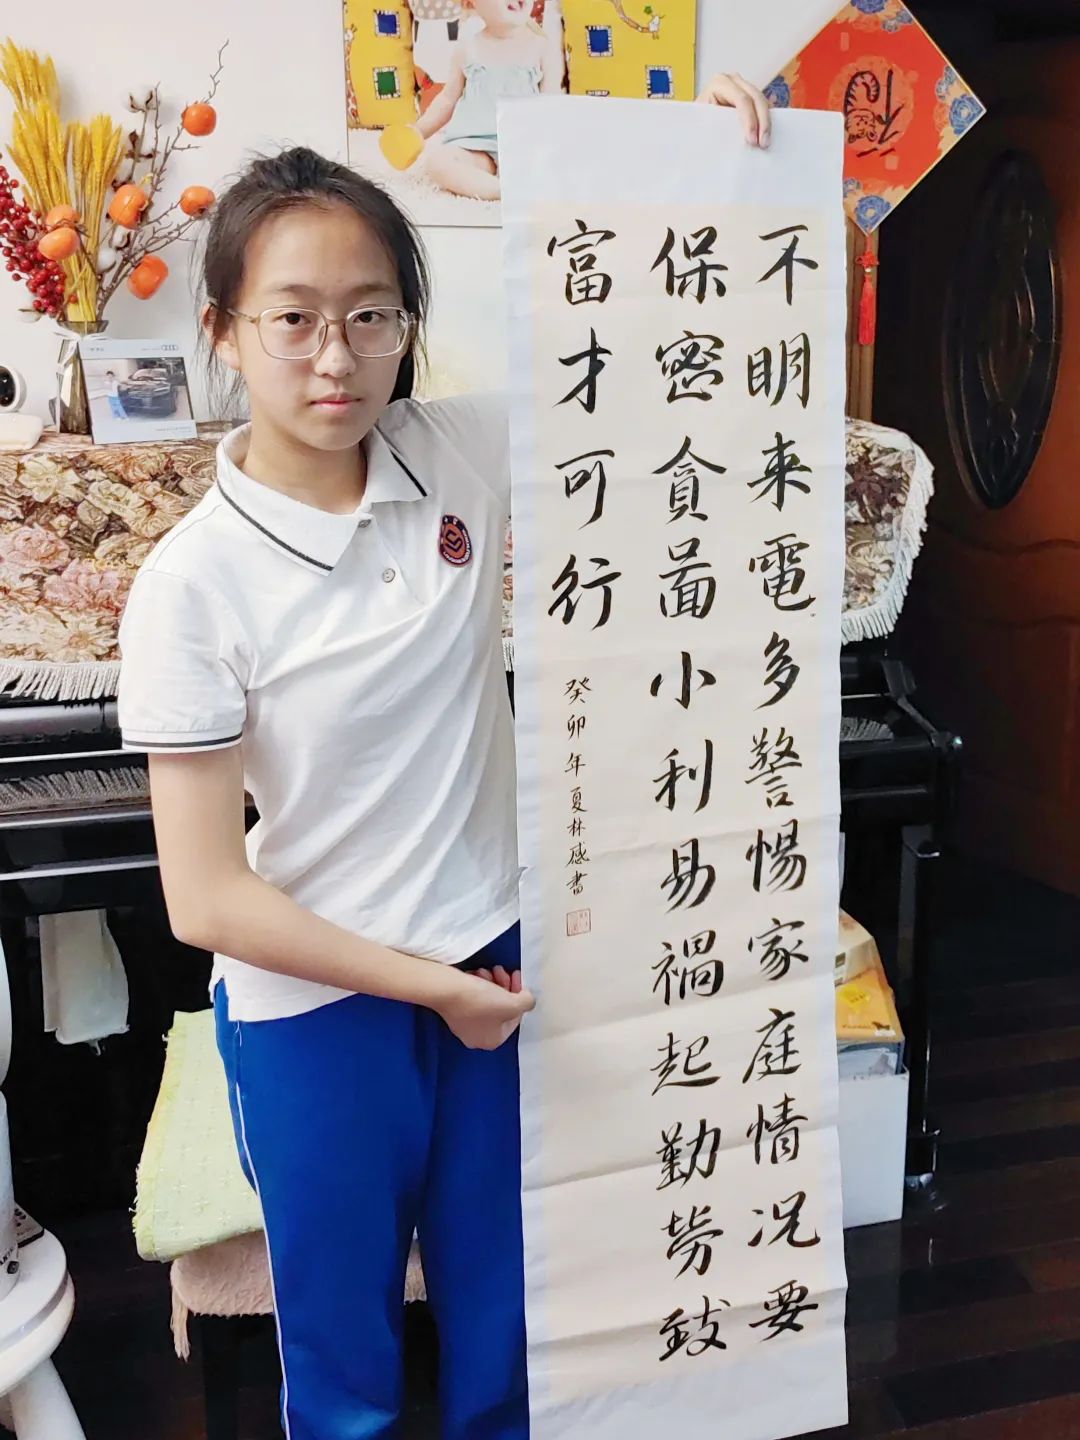 不明来電多警惕家庭情况要
保密貪啚小利易禍起勤勞致
富才可行
癸卯年夏林感書